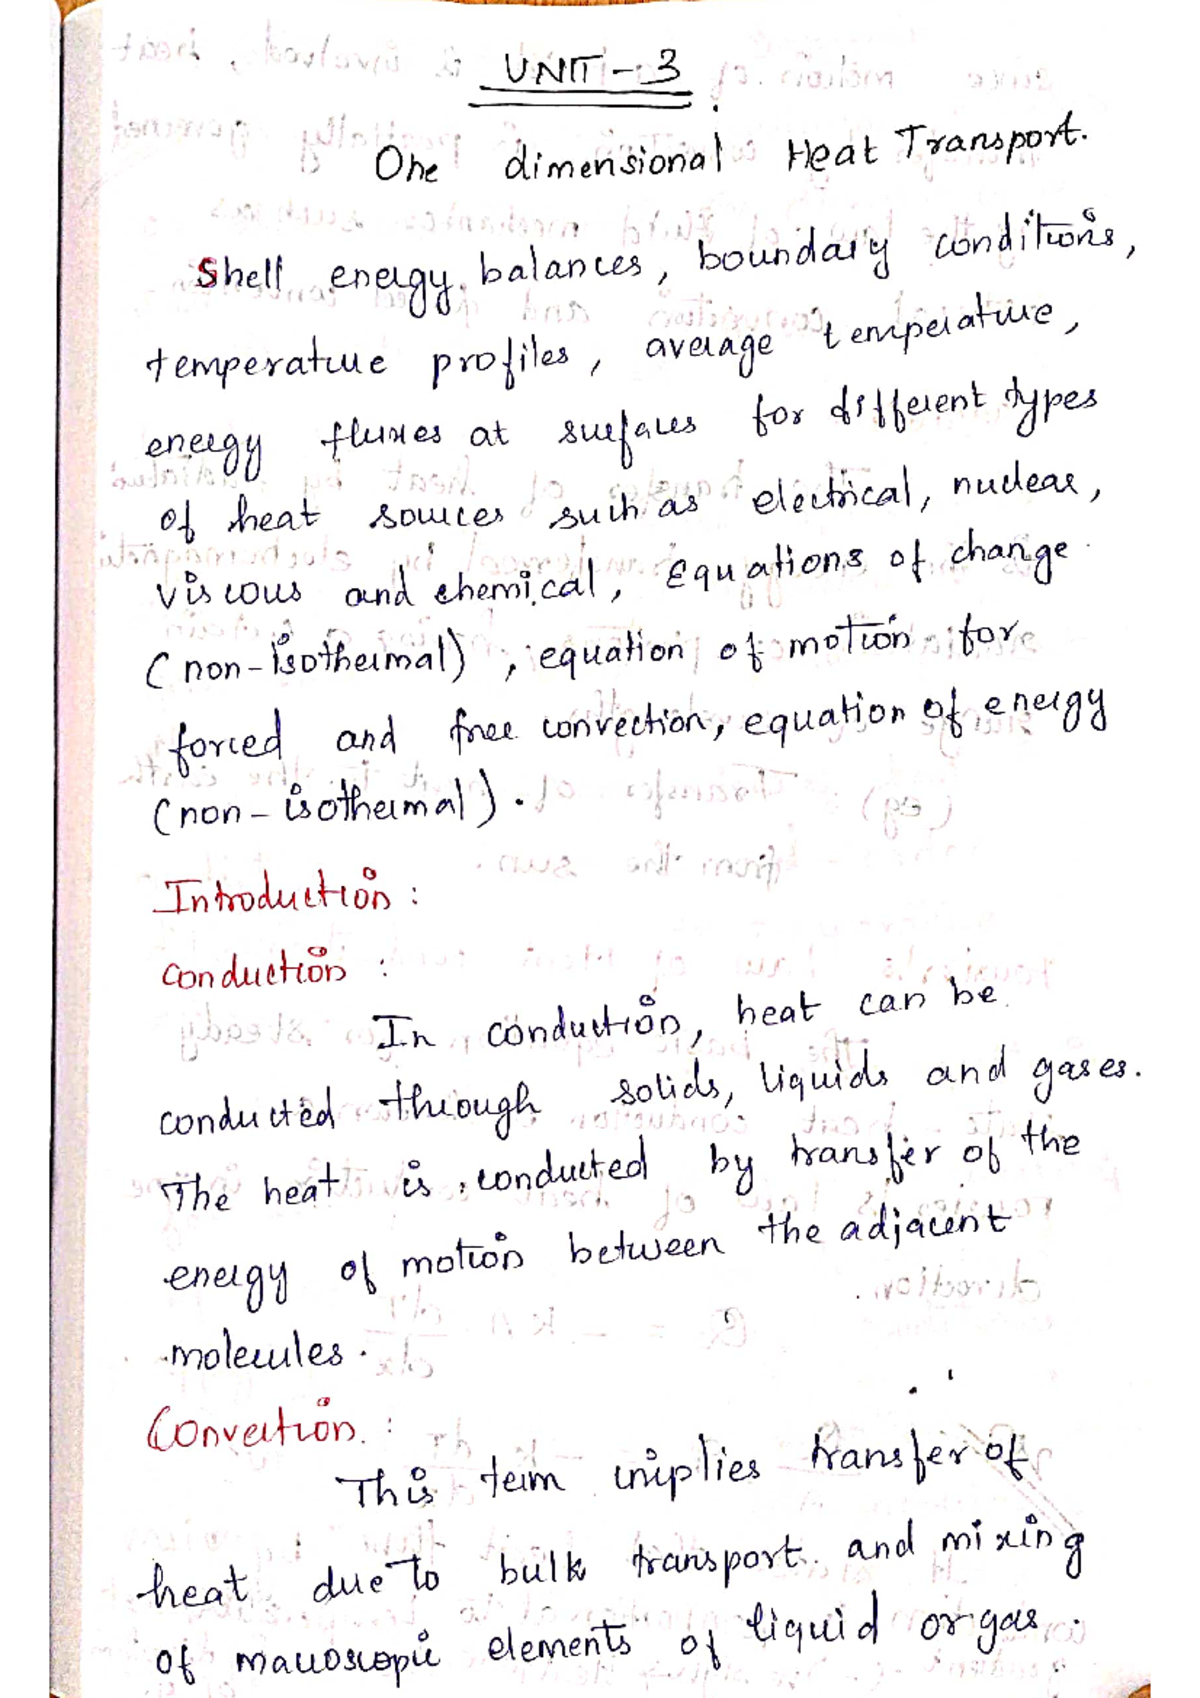 UNIT - 3
One dimensional Heat Transport.
Shell energy balances, boundary conditions,
temperature profiles, average temperature,
energy fluxes at surfaces for different types
of heat sources such as electrical, nuclear,
viscous and chemical, Equations of change
(non-isothermal), equation of motion for
forced and free convection, equation of energy
(non-isothermal).
Introduction:
Conduction:
In conduction, heat can be
conducted through solids, liquids and gases.
The heat is conducted by transfer of the
energy of motion between the adjacent
molecules.
Convection:
This term implies transfer of
heat due to bulk transport and mixing
of macroscopic elements of liquid or gas.